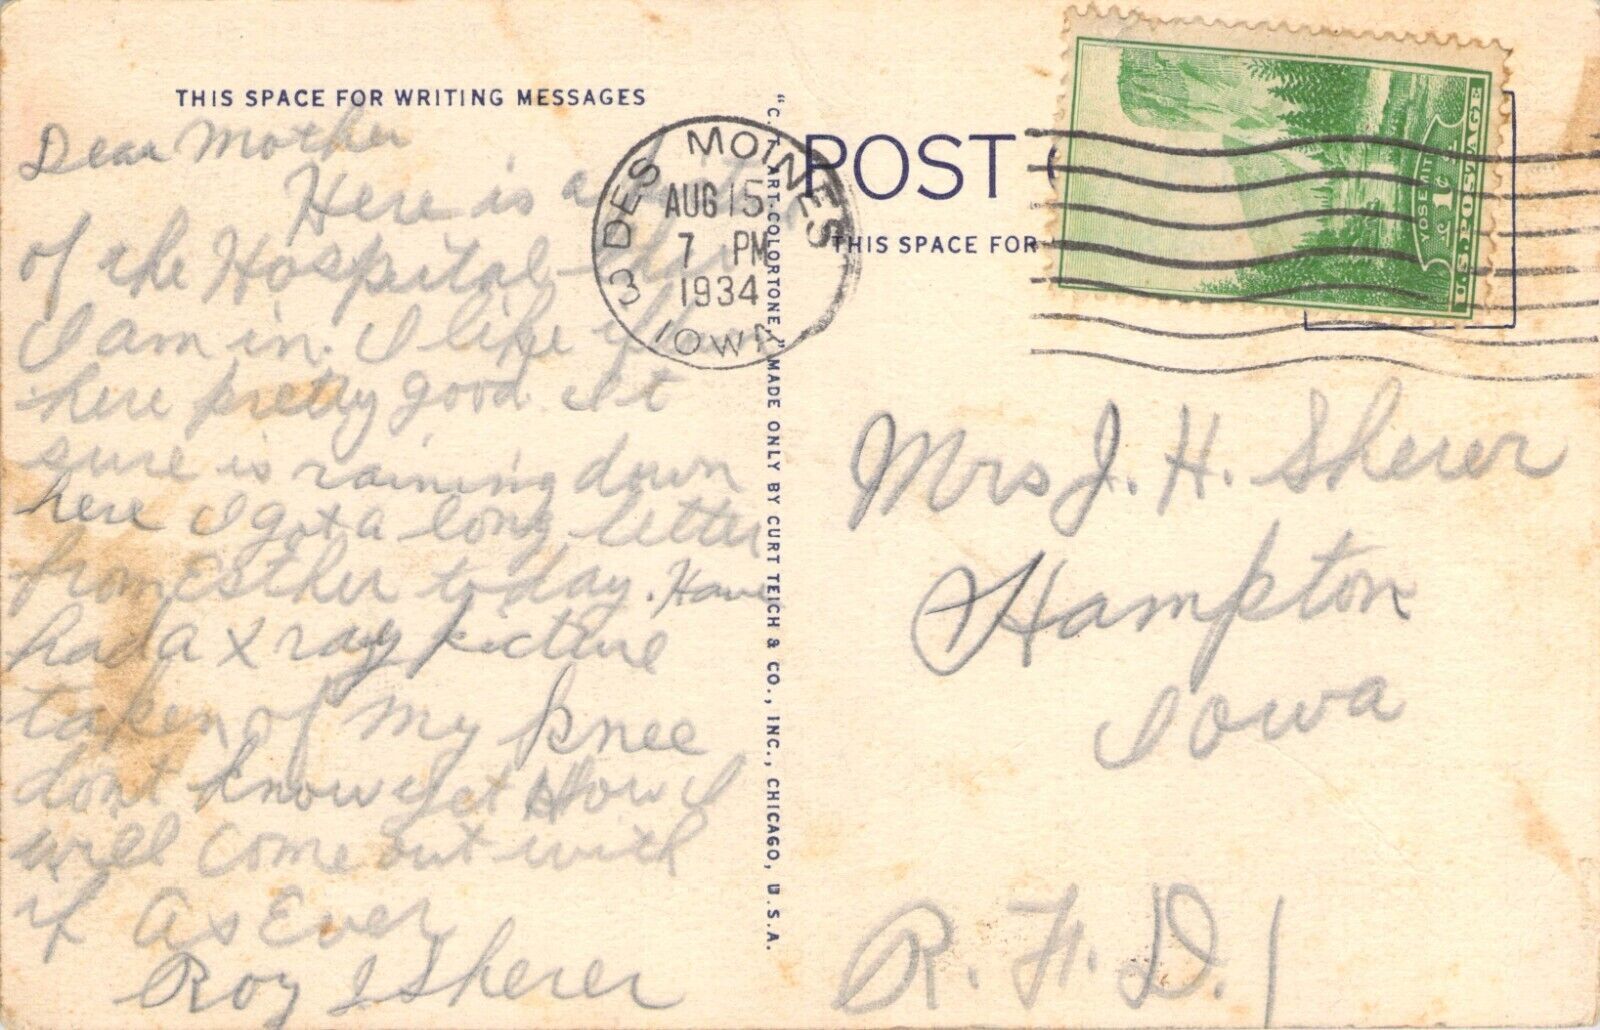 THIS SPACE FOR WRITING MESSAGES
Dear Mother
Here is a
of the Hospital that
I am in. I like it
here pretty good It
sure is raining down
here I got a long letter
from Esther today. Have
had a x ray picture
taken of my knee
dont know yet How I
will come out with
it As Ever
Roy J Sherer
"C.T. ART-COLORTONE" MADE ONLY BY CURT TEICH & CO., INC., CHICAGO, U.S.A.
DES MOINES
AUG 15
7 PM
1934
IOWA
3
POST
THIS SPACE FOR
YOSEMITE
1¢
U.S. POSTAGE
Mrs J. H. Sherer
Hampton
Iowa
R. F. D. 1